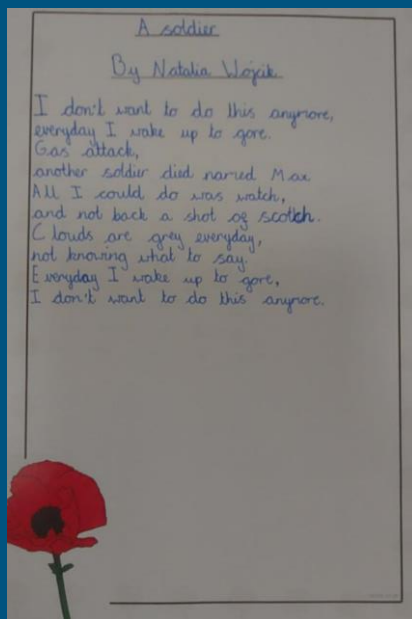 A soldier
By Natalia Wojcik
I don't want to do this anymore,
everyday I wake up to gore.
Gas attack,
another soldier died named Max
All I could do was watch,
and not back a shot of scotch.
Clouds are grey everyday,
not knowing what to say.
Everyday I wake up to gore,
I don't want to do this anymore.